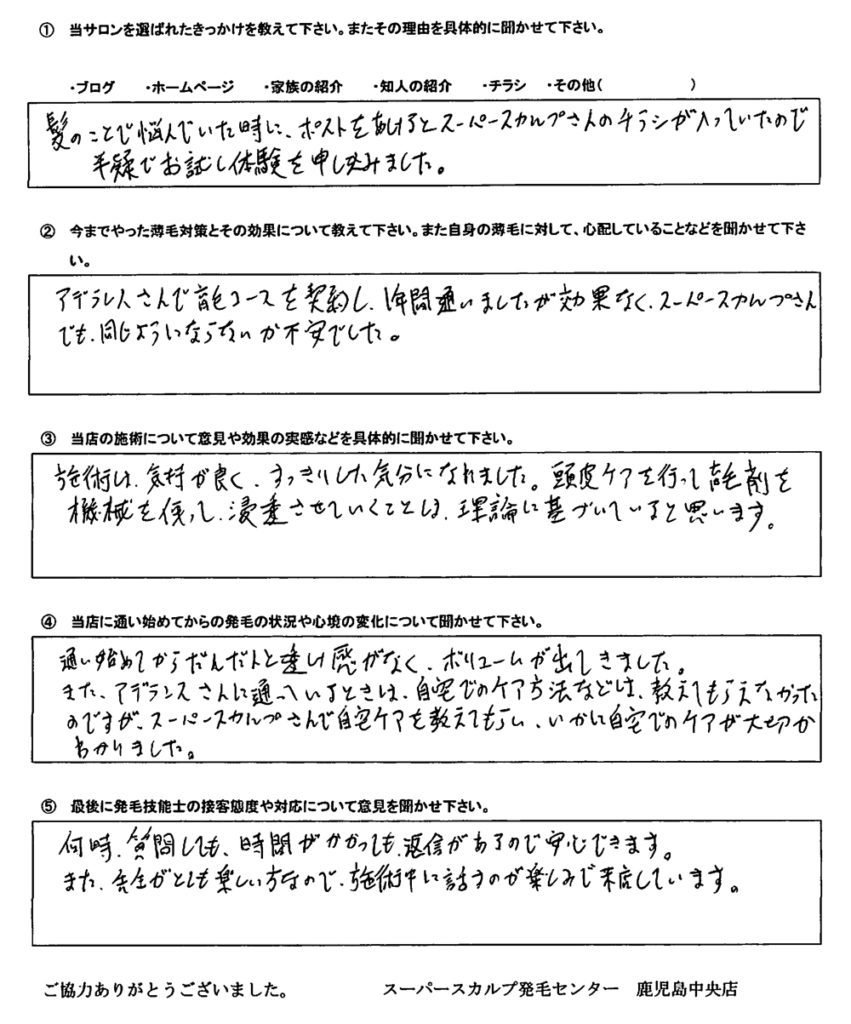 ① 当サロンを選ばれたきっかけを教えて下さい。またその理由を具体的に聞かせて下さい。
・ブログ ・ホームページ ・家族の紹介 ・知人の紹介 ・チラシ ・その他( )
髪のことで悩んでいた時に、ポストをあけるとスーパースカルプさんのチラシが入っていたので
半疑でお試し体験を申し込みました。
② 今までやった薄毛対策とその効果について教えて下さい。また自身の薄毛に対して、心配していることなどを聞かせて下さ
い。
アデランスさんで育毛コースを契約し、1年間通いましたが効果なく、スーパースカルプさん
でも、同じようにならないか不安でした。
③ 当店の施術について意見や効果の実感などを具体的に聞かせて下さい。
施術は、気持が良く、すっきりした気分になれました。頭皮ケアを行って育毛剤を
機械を使って、浸透させていくことは、理論に基づいていると思います。
④ 当店に通い始めてからの発毛の状況や心境の変化について聞かせて下さい。
通い始めてからだんだんと違い感がなく、ボリュームが出てきました。
また、アデランスさんに通っているときは、自宅でのケア方法などは、教えてもらえなかった
のですが、スーパースカルプさんで自宅ケアを教えてもらい、いかに自宅でのケアが大切か
わかりました。
⑤ 最後に発毛技能士の接客態度や対応について意見を聞かせ下さい。
何時、質問しても、時間がかかっても、返信があるので安心できます。
また、先生がとても楽しい方なので、施術中に話すのが楽しみで来店しています。
ご協力ありがとうございました。 スーパースカルプ発毛センター 鹿児島中央店